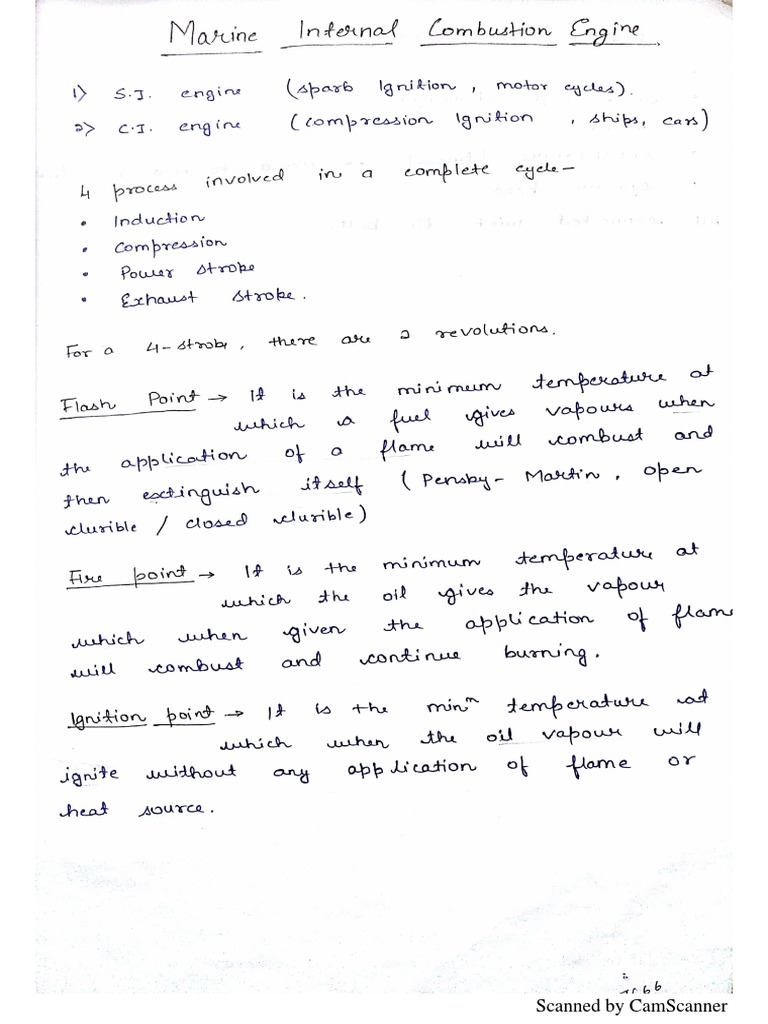 Marine Internal Combustion Engine
1) S.I. engine (spark Ignition, motor cycles).
2) C.I. engine (compression Ignition, ships, cars)
4 process involved in a complete cycle-
• Induction
• Compression
• Power stroke
• Exhaust stroke.
For a 4-stroke, there are 2 revolutions.
Flash Point → It is the minimum temperature at
which a fuel gives vapours when
the application of a flame will combust and
then extinguish itself (Pensby-Martin, open
clurible / closed clurible)
Fire point → It is the minimum temperature at
which the oil gives the vapour
which when given the application of flame
will combust and continue burning.
Ignition point → It is the minᵐ temperature at
which when the oil vapour will
ignite without any application of flame or
heat source.
Scanned by CamScanner